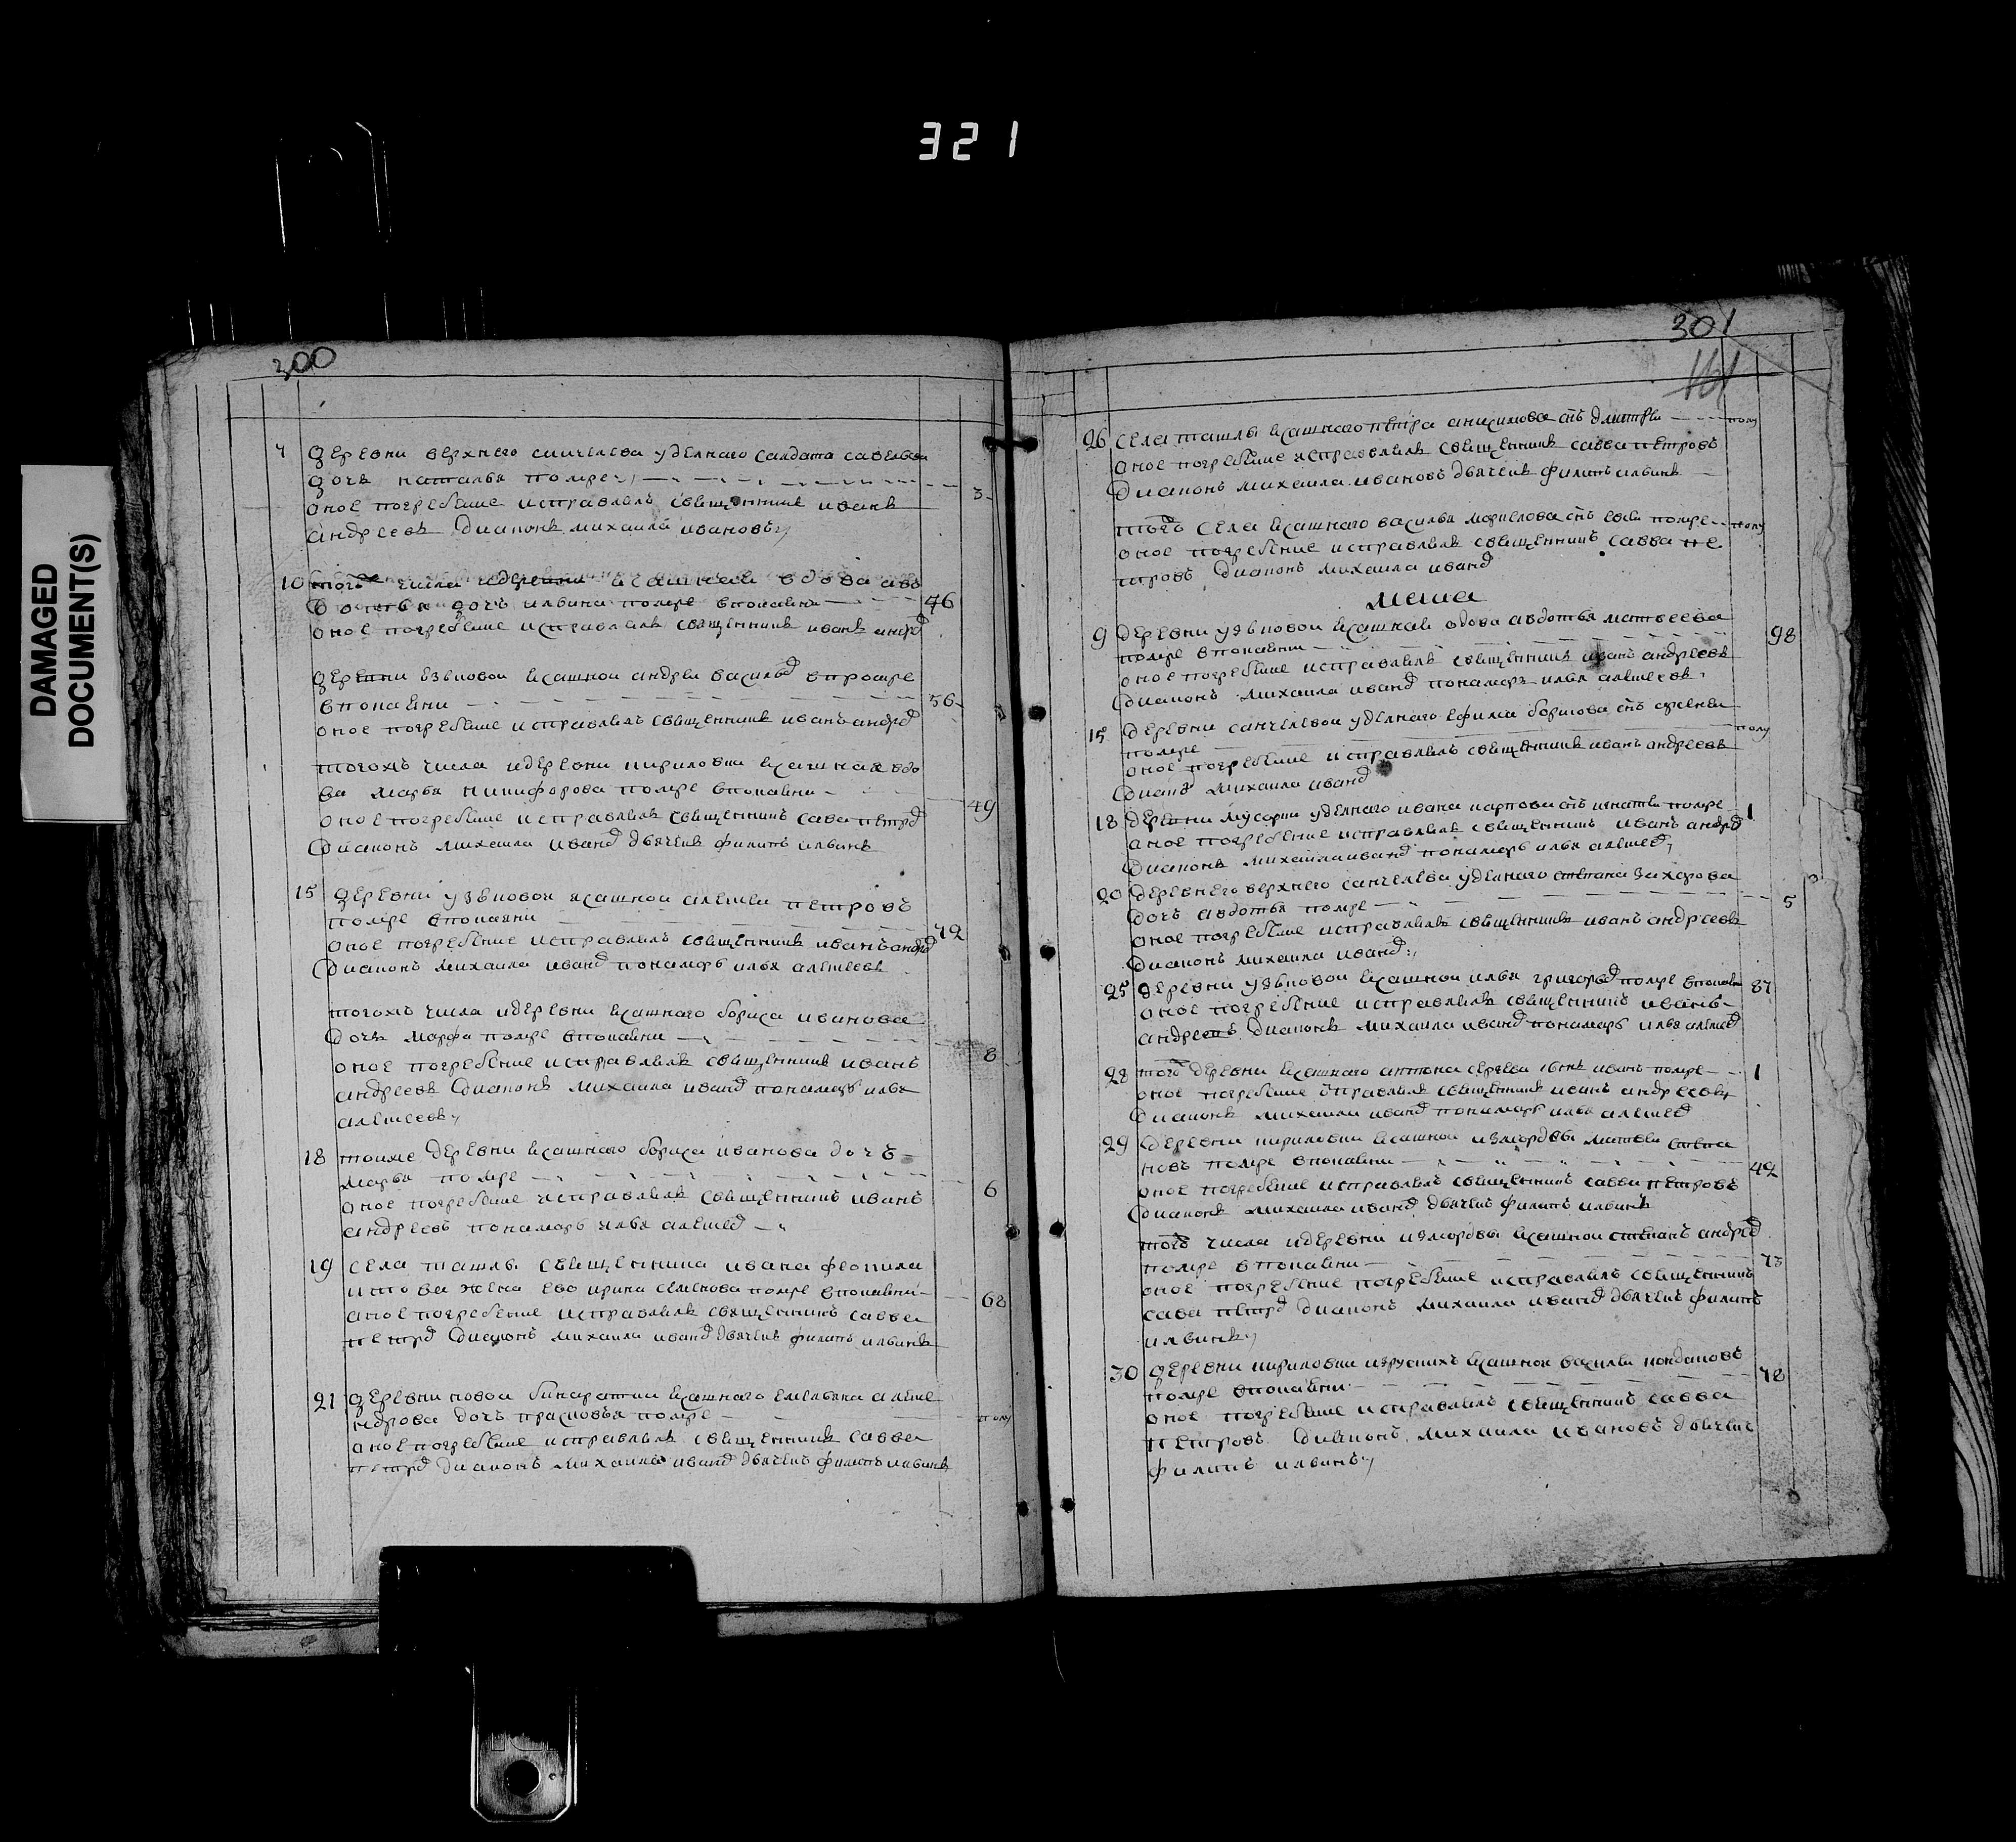 321
DAMAGED
DOCUMENT(S)
300
деревни верхнего санчелева уделнаго салдата савельва
дочь наталья помре 3
оное погребение исправлялъ священникъ иванъ
андреевъ диаконъ михаила ивановъ
10 тогож числа идеревни ясашная вдова
дочь ильина помре впокаянии 76
оное погребение исправлялъ священникъ иванъ андред
деревни узьковой ясашной андрей васильд
впокаянии 56
оное погребение исправлялъ священникъ иванъ андред
тогожъ числа идеревни кириловки ясашная вдо
ва марья никифорова помре впокаянии 49
оное погребение исправлялъ священникъ сава петрд
диаконъ михаила иванд дьячекъ филипъ ильинъ
15 деревни узьковой ясашной алексеи петровъ
помре впокаянии 72
оное погребение исправлялъ священникъ иванъ андрд
диаконъ михаила иванд пономарь илья алексеевъ
тогожъ числа идеревни ясашнаго бориса иванова
дочь марфа помре впокаянии 8
оное погребение исправлялъ священникъ иванъ
андреевъ диаконъ михаила иванд понамарь илья
алексеевъ
18 тоиже деревни ясашнаго бориса иванова дочь
марья помре 6
оное погребение исправлялъ священникъ иванъ
андреевъ понамарь илья алексед
19 села ташлы священника ивана феопила
ктова жена ево ирина семенова помре впокаянии 68
оное погребение исправлялъ священникъ савва
петрд диаконъ михаила иванд дьячекъ филипъ ильинъ
21 деревни новой бинаратки ясашнаго емельяна алекса
ндрова дочь прасковья помре полу
оное погребение исправлялъ священникъ савва
петрд диаконъ михаила иванд дьячекъ филипъ ильинъ
301
161
26 села ташлы ясашнаго петра анисимова снъ дмитреи полу
оное погребение исправлялъ священникъ савва петровъ
диаконъ михаила ивановъ дьячекъ филипъ ильинъ
тогож села ясашнаго василья снъ помре полу
оное погребение исправлялъ священникъ савва пе
тровъ диаконъ михаила иванд
маиа
9 деревни узьковой ясашная вдова авдотья матвеева 98
помре впокаянии
оное погребение исправлялъ священникъ иванъ андреевъ
диаконъ михаила иванд понамарь илья алексеевъ
15 деревни санчелевой уделнаго ефима борисова снъ полу
помре
оное погребение исправлялъ священникъ иванъ андреевъ
михаила иванд
18 деревни мусорки уделнаго ивана карпова снъ игнатеи помре 1
оное погребение исправлялъ священникъ иванъ андред
диаконъ михаила иванд понамарь илья алексед
20 деревнего верхнего санчелева уделнаго степана захарова
дочь авдотья помре 5
оное погребение исправлялъ священникъ иванъ андреевъ
диаконъ михаила иванд
25 деревни узьковой ясашной илья григорьд помре впокаянии 87
оное погребение исправлялъ священникъ иванъ
андреевъ диаконъ михаила иванд понамарь илья алексед
28 тогож деревни ясашнаго антона сергеева сынъ иванъ помре 1
оное погребение исправлялъ священникъ иванъ андреевъ
диаконъ михаила иванд понамарь илья алексед
29 деревни кириловки ясашной измордвы матвеи степа
новъ помре впокаянии 42
оное погребение исправлялъ священникъ савва петровъ
диаконъ михаила иванд дьячекъ филипъ ильинъ
тогожъ числа идеревни измордвы ясашной степанъ андред
помре впокаянии 73
оное погребение погребение исправлялъ священникъ
сава петрд диаконъ михаила иванд дьячекъ филипъ
ильинъ
30 деревни кириловки изруских ясашной василеи
помре впокаянии 78
оное погребение исправлялъ священникъ савва
петровъ диаконъ михаила ивановъ дьячекъ
филипъ ильинъ